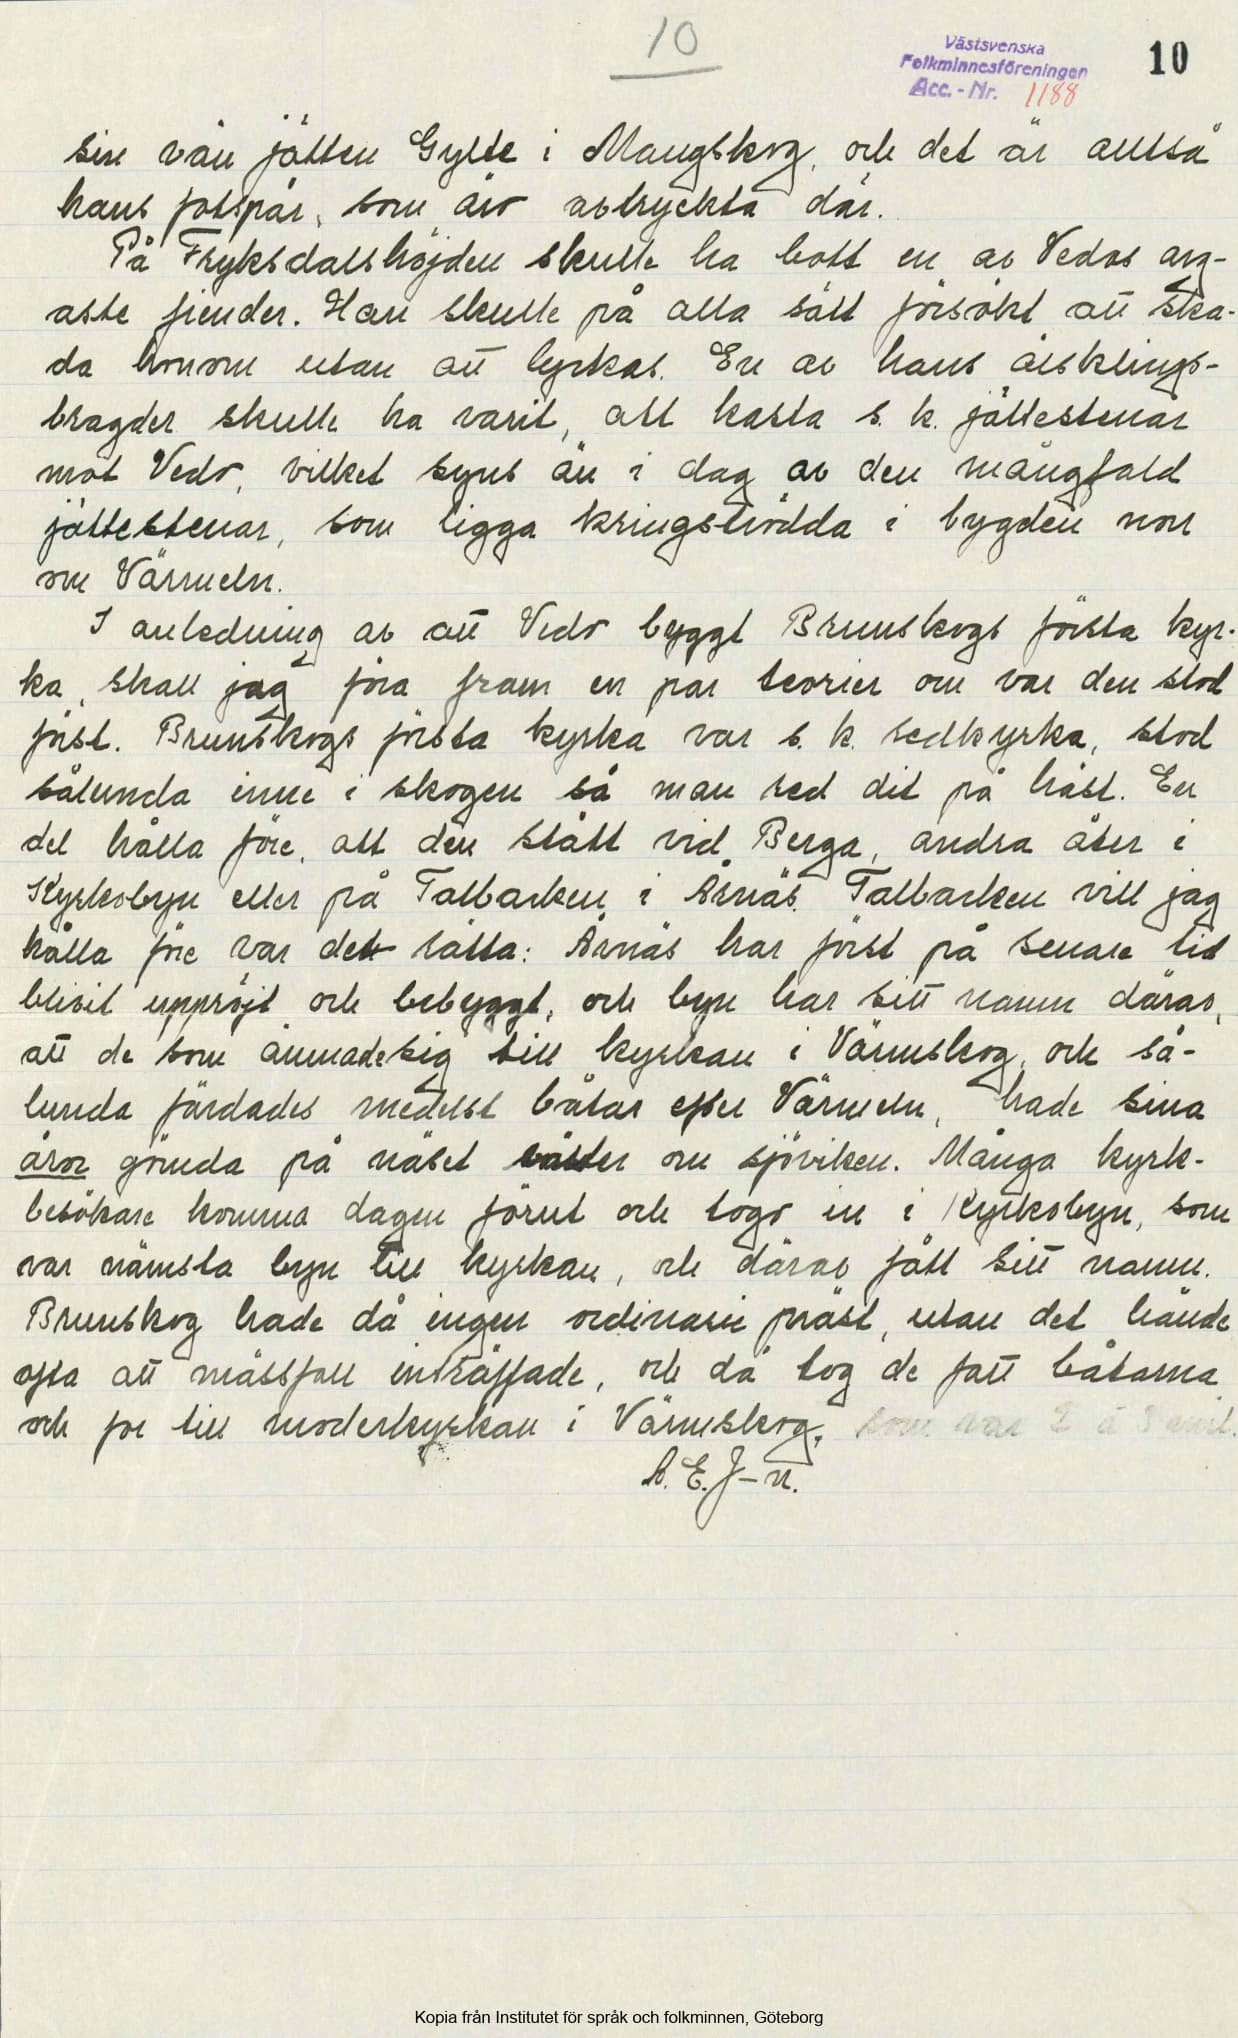 10
Västsvenska
Folkminnesföreningen
Acc. - Nr. 1188
10
sin vän jätten Gylte i Mangskog, och det är alltså
hans fotspår, som äro avtryckta där.
På Fryksdalshöjden skulle ha bott en av Vedos arg-
aste fiender. Han skulle på alla sätt försökt att ska-
da honom utan att lyckas. En av hans älsklings-
bragder skulle ha varit, att kasta s. k. jättestenar
mot Vedo, vilket syns än i dag av den mångfald
jättestenar, som ligga kringströdda i bygden norr
om Värmeln.
I anledning av att Vedo byggt Brunskogs första kyr-
ka, skall jag föra fram en par teorier om var den stod
först. Brunskogs första kyrka var s. k. redkyrka, stod
sålunda inne i skogen så man red dit på häst. En
del hålla före, att den stått vid Berga, andra åter i
Kyrkobyn eller på Tallbacken i Årnäs. Tallbacken vill jag
hålla före var det rätta: Årnäs har först på senare tid
blivit uppröjt och bebyggt, och byn har sitt namn därav,
att de som ämnade sig till kyrkan i Värmskog, och så-
lunda färdades medelst båtar efter Värmeln, hade sina
åror gömda på näset väster om sjöviken. Många kyrk-
besökare komma dagen förut och togo in i Kyrkobyn, som
var närmsta byn till kyrkan, och därav fått sitt namn.
Brunskog hade då ingen ordinarie präst, utan det hände
ofta att mässfall inträffade, och då tog de fatt båtarna
och for till moderkyrkan i Värmskog, som var 2 à 3 mil.
A. E. J-n.
Kopia från Institutet för språk och folkminnen, Göteborg